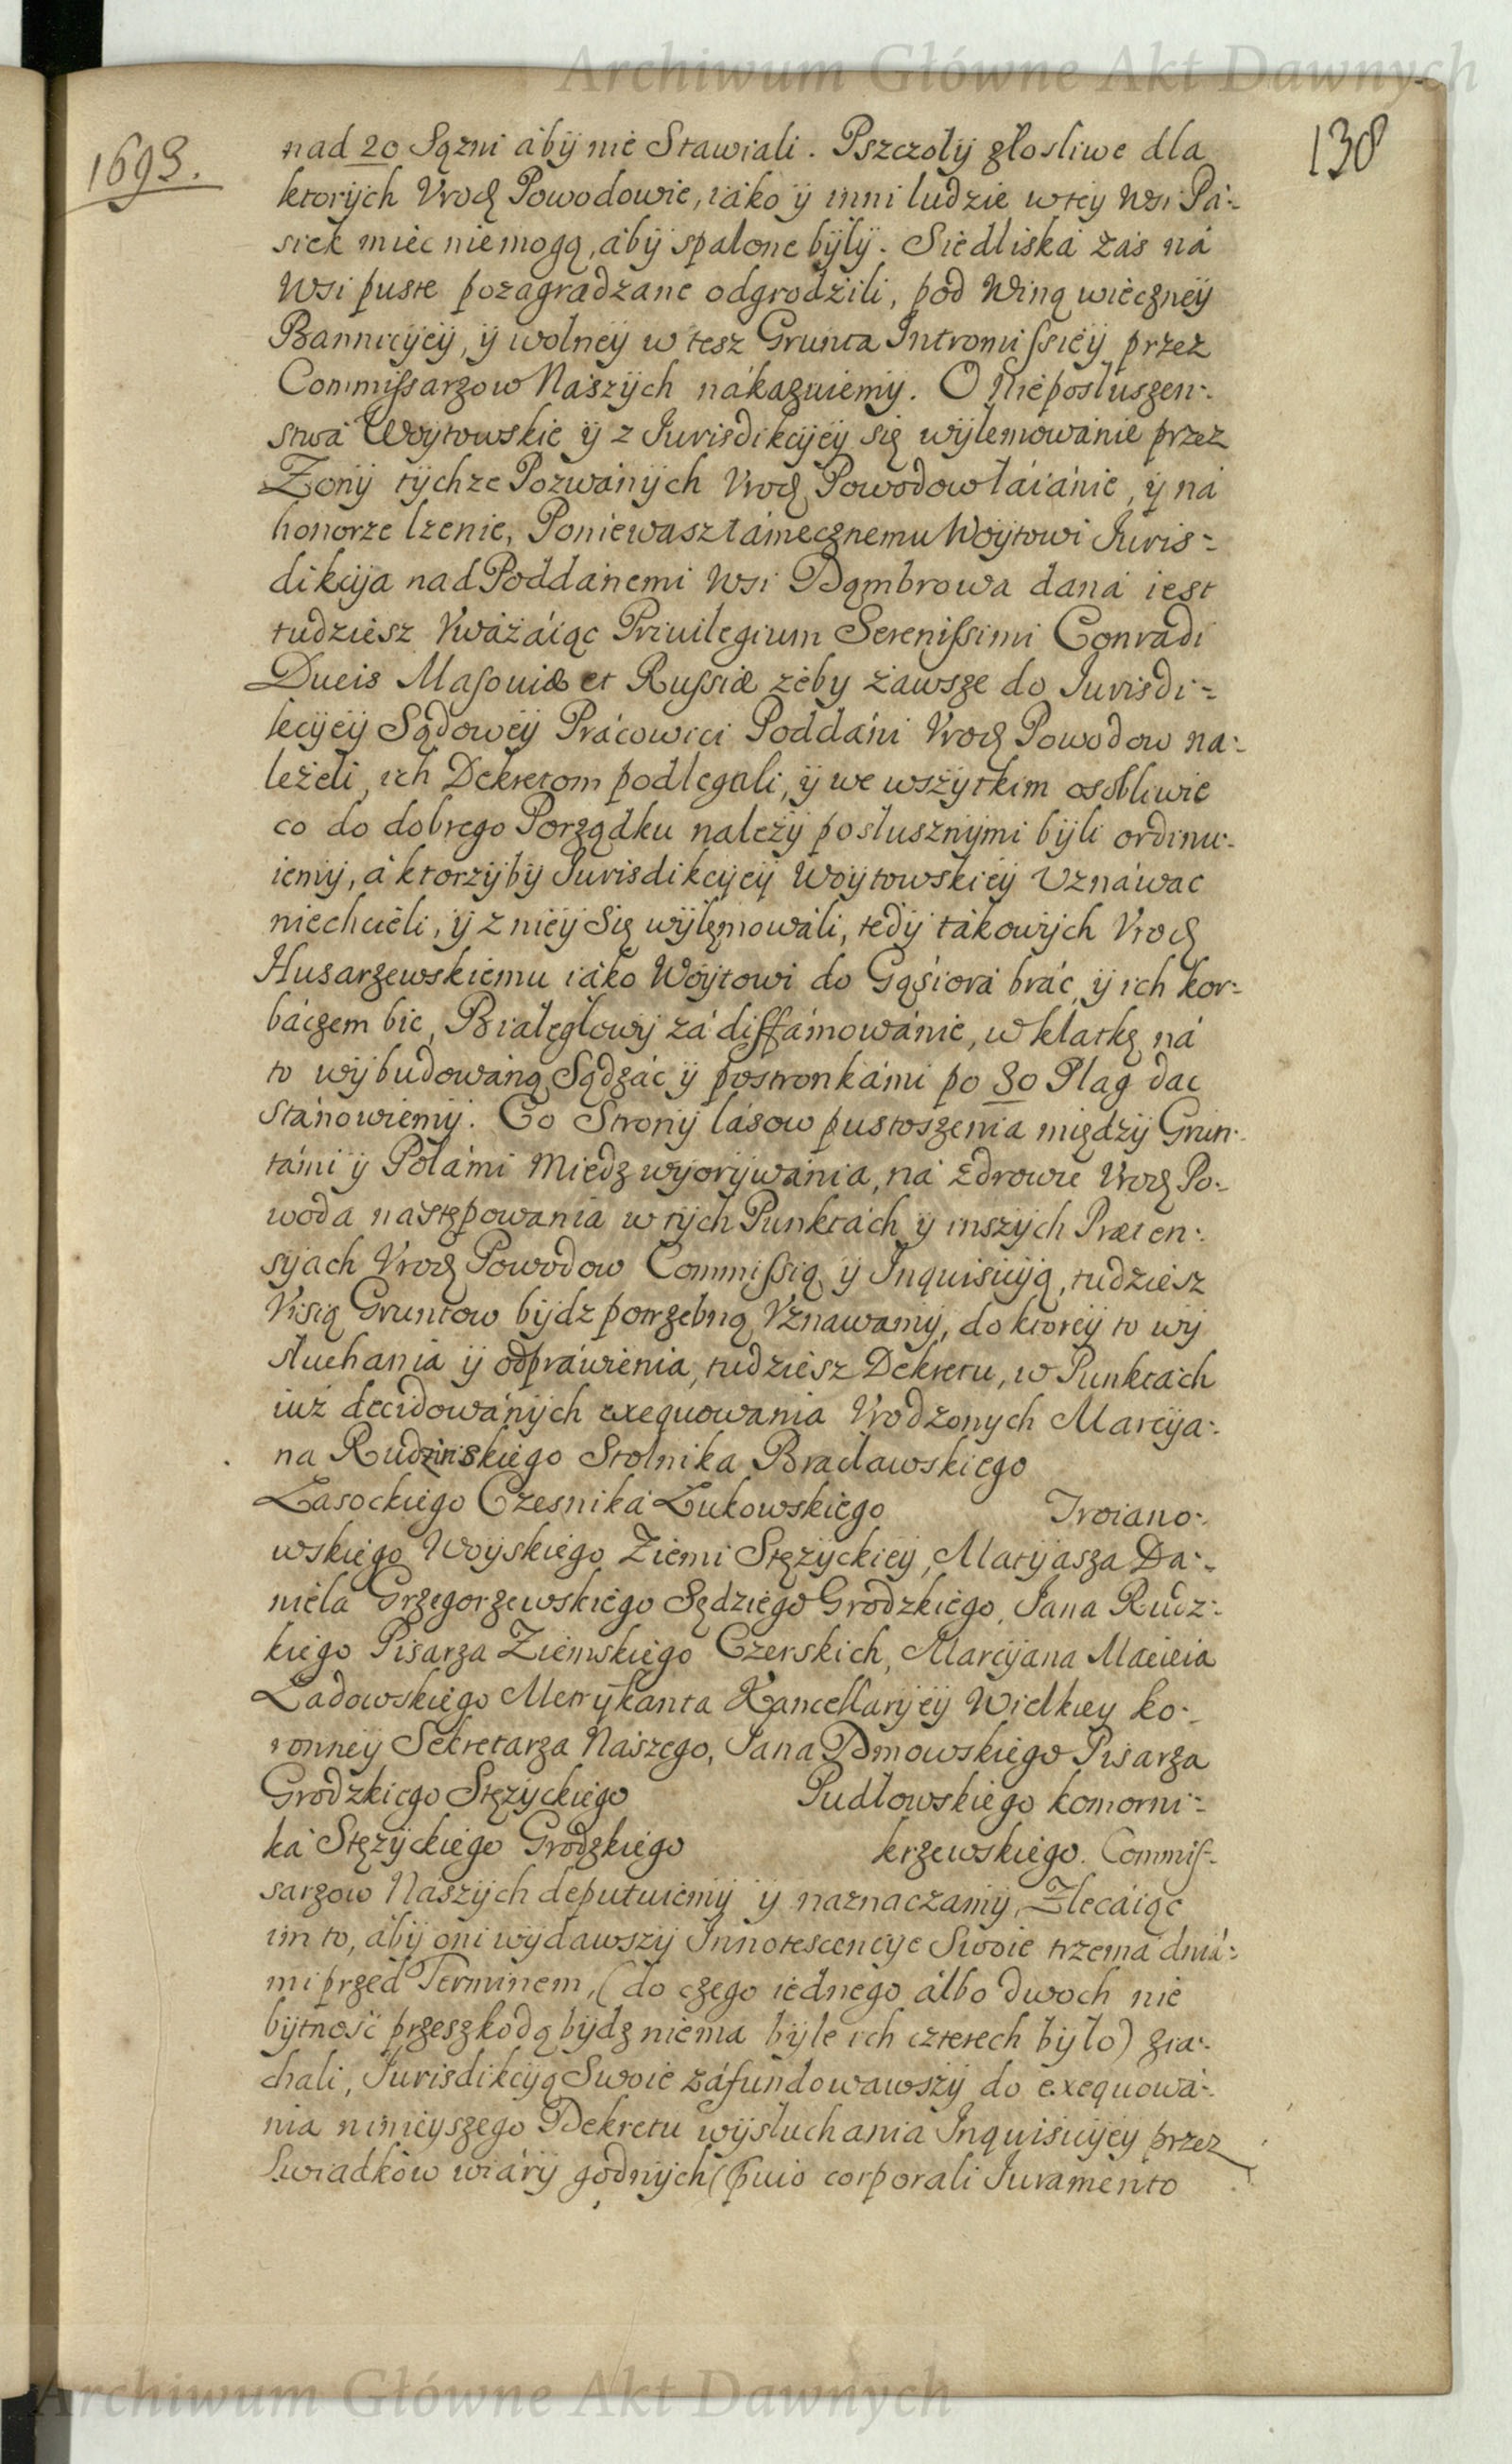 Archiwum Główne Akt Dawnych
1693.
138
nad 20 Sązni áby nie Stawiali. Pszczoły złosliwe dla
ktorych Vrodz Powodowie, iáko y inni ludzie w tey Wsi Pá-
siek miec niemogą, áby spalone były. Siedliska zas ná
Wsi puste pozagradzane odgrodzili, pod Winą wieczney
Bannicyey, y wolney w tesz Grunta Intromissiey przez
Commissarzow Naszych nákazuiemy. O Nieposłuszen-
stwá Woytowskie y z Iurisdikcyey się wylemowánie przez
Zony tychze Pozwánych Vrodz Powodow łáiánie, y ná
honorze lzenie, Poniewasz támecznemu Woytowi Iuris-
dikcija nad Poddánemi Wsi Dąmbrowa daná iest
tudziesz Vważáiąc Priuilegium Serenissimi Conradi
Ducis Masouiæ et Russiæ żeby zawsze do Iurisdi-
kcyey Sądowey Prácowici Poddáni Vrodz Powodow na-
leżeli, ich Dekretom podlegali, y we wszytkim osobliwie
co do dobrego Porządku należy posłusznymi byli ordinu-
iemy, á ktorzyby Iurisdikcyey Woytowskiey Vznáwac
niechcieli, y z niey Się wylęmowáli, tedy tákowych Vrodz
Husarzewskiemu iáko Woytowi do Gąśiorá bráć, y ich kor-
báczem bic, Białegłowy zá diffámowánie, w klatkę ná
to wybudowáną Sądzáć y postronkámi po 30 Plag dac
Stánowiemy. Co Strony lásow pustoszenia między Grun-
támi y Polámi Miedz wyorywánia, ná zdrowie Vrodz Po-
woda następowania w tych Punktách y inszych Præten-
syach Vrodz Powodow Commissią y Inquisicyą, tudziesz
Visią Gruntow bydz potrzebną Vznawamy, do ktorey to wy
słuchania y odpráwienia, tudziesz Dekretu, w Punktách
iuż decidowánych exequowania Vrodzonych Marcya-
na Rudzinskiego Stolnika Bracławskiego
Lasockiego Czesnika Łukowskiego Troiano-
wskiego Woyskiego Ziemi Stężyckiey, Matyasza Da-
niela Grzegorzewskiego Sędziego Grodzkiego, Jana Rudz-
kiego Pisarza Ziemskiego Czerskich, Marcyana Macieia
Ładowskiego Metrykanta Kancellaryey Wielkiey ko-
ronney Sekretarza Naszego, Jana Dmowskiego Pisarza
Grodzkiego Stężyckiego Pudłowskiego komorni-
ká Stężyckiego Grodzkiego krzewskiego. Commis-
sarzow Naszych deputuiemy y naznaczamy, Zlecáiąc
im to, áby oni wydawszy Innotescencye Swoie trzemá dniá-
mi przed Terminem, (do czego iednego álbo dwoch nie
bytność przeszkodą bydz niema byle ich czterech było) zia-
chali, Iurisdikcyą Swoie záfundowawszy do exequowá-
nia ninieyszego Dekretu wysłuchania Inquisicyey przez
Swiadkow wiáry godnych (puio corporali Iuramento
Archiwum Główne Akt Dawnych